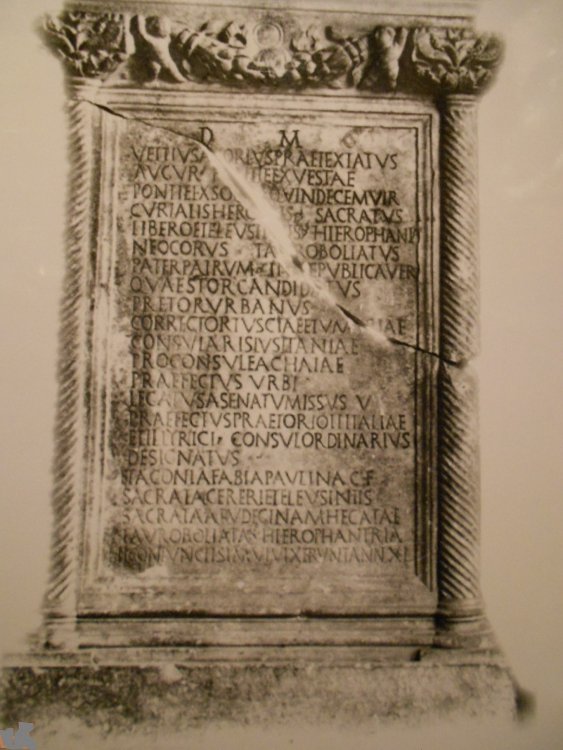 D M
VETTIVS AGORIVS PRAETEXTATVS
AVGVR VESTAE
PONTIFEX QVINDECEMVIR
CVRIALIS SACRATVS
LIBERO ET HIEROPHANTA
NEOCORVS TAVROBOLIATVS
PATER PATRVM IN REPVBLICA VERO
QVAESTOR CANDIDATVS
PRETOR VRBANVS
CORRECTOR TVSCIAE ET VMBRIAE
CONSVLARIS LVSITANIAE
PROCONSVLE ACHAIAE
PRAEFECTVS VRBI
LEGATVS A SENATV MISSVS V
PRAEFECTVS PRAETORIO II ITALIAE
ET ILLYRICI CONSVL ORDINARIVS
DESIGNATVS
ET ACONIA FABIA PAVLINA C F
SACRATA CERERI ET ELEVSINIIS
SACRATA APVD EGINAM HECATAE
TAVROBOLIATA HIEROPHANTRIA
HI CONIVNCTI SIMVL VIXERVNT ANN XL